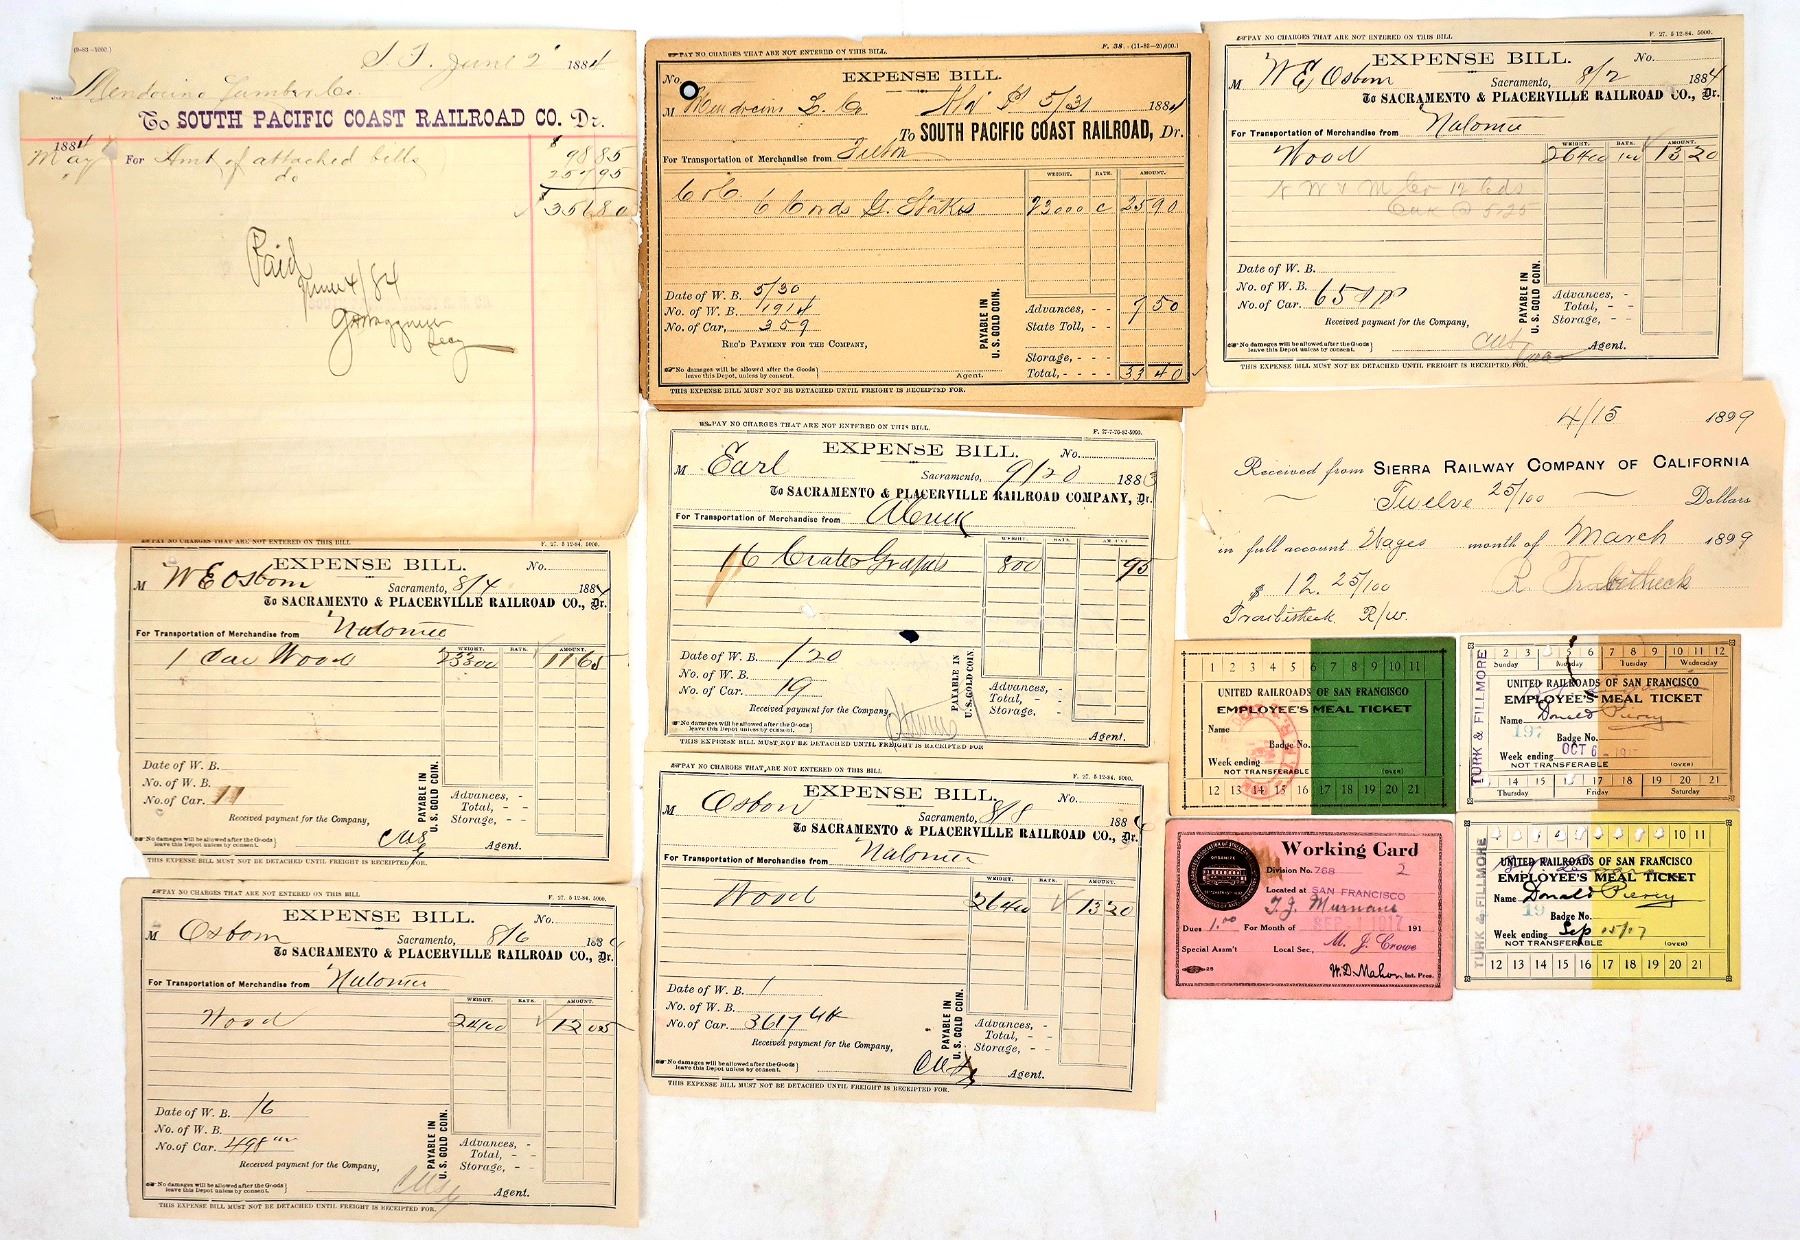 (9-83-5000.)
S. F. June 2 1884
Mendocino Lumber Co.
To SOUTH PACIFIC COAST RAILROAD CO. Dr.
1884
May For Amt of attached bills $ 98 85
" do 257 95
$ 356 80
Paid
June 4/84
Secy
PAY NO CHARGES THAT ARE NOT ENTERED ON THIS BILL. F. 38.-(11-83-20,000.)
No. EXPENSE BILL.
M Mendocino L. Co 5/31 1884
To SOUTH PACIFIC COAST RAILROAD, Dr.
For Transportation of Merchandise from Felton
WEIGHT. RATE. AMOUNT.
6 Cords G. Stakes 73000 c 25 90
Date of W. B. 5/30
No. of W. B. 1914
No. of Car, 359
REC'D PAYMENT FOR THE COMPANY,
PAYABLE IN U. S. GOLD COIN.
Advances, - - 7 50
State Toll, - -
Storage, - -
Total, - - - - 33 40
No damages will be allowed after the Goods leave this Depot, unless by consent. Agent.
THIS EXPENSE BILL MUST NOT BE DETACHED UNTIL FREIGHT IS RECEIPTED FOR.
PAY NO CHARGES THAT ARE NOT ENTERED ON THIS BILL F. 27. 5 12-84. 5000.
EXPENSE BILL. No.
M W E Osborn Sacramento, 8/2 1884
To SACRAMENTO & PLACERVILLE RAILROAD CO., Dr.
For Transportation of Merchandise from Natoma
WEIGHT. RATE. AMOUNT.
Wood 26400 13 20
12 Cds
Oak @ 5.25
Date of W. B.
No. of W. B.
No. of Car.
Received payment for the Company,
PAYABLE IN U. S. GOLD COIN.
Advances, -
Total, - -
Storage, - -
No damages will be allowed after the Goods leave this Depot, unless by consent. Agent.
THIS EXPENSE BILL MUST NOT BE DETACHED UNTIL FREIGHT IS RECEIPTED FOR.
PAY NO CHARGES THAT ARE NOT ENTERED ON THIS BILL. F. 27-7-20-83-5000.
EXPENSE BILL. No.
M Earl Sacramento, 9/20 1883
To SACRAMENTO & PLACERVILLE RAILROAD COMPANY, Dr.
For Transportation of Merchandise from
WEIGHT. RATE. AMOUNT
16 Crates Grapes 800 95
Date of W. B. 120
No. of W. B.
No. of Car. 19
Received payment for the Company,
PAYABLE IN U. S. GOLD COIN.
Advances, -
Total, - -
Storage, - -
No damages will be allowed after the Goods leave this Depot, unless by consent. Agent.
THIS EXPENSE BILL MUST NOT BE DETACHED UNTIL FREIGHT IS RECEIPTED FOR
4/15 1899
Received from SIERRA RAILWAY COMPANY OF CALIFORNIA
Twelve 25/100 Dollars
in full account Wages month of March 1899
$ 12. 25/100 R.
R/w.
PAY NO CHARGES THAT ARE NOT ENTERED ON THIS BILL F. 27. 5 12-84. 5000.
EXPENSE BILL. No.
M W E Osborn Sacramento, 8/4 1884
To SACRAMENTO & PLACERVILLE RAILROAD CO., Dr.
For Transportation of Merchandise from Natoma
WEIGHT. RATE. AMOUNT.
1 Car Wood 23300 11 65
Date of W. B.
No. of W. B.
No. of Car. 11
Received payment for the Company,
PAYABLE IN U. S. GOLD COIN.
Advances, -
Total, - -
Storage, - -
No damages will be allowed after the Goods leave this Depot, unless by consent. Agent.
THIS EXPENSE BILL MUST NOT BE DETACHED UNTIL FREIGHT IS RECEIPTED FOR.
PAY NO CHARGES THAT ARE NOT ENTERED ON THIS BILL F. 27. 5 12-84. 5000.
EXPENSE BILL. No.
M Osborn Sacramento, 8/8 1884
To SACRAMENTO & PLACERVILLE RAILROAD CO., Dr.
For Transportation of Merchandise from Natoma
WEIGHT. RATE. AMOUNT.
Wood 26400 13 20
Date of W. B. 1
No. of W. B.
No. of Car. 3617
Received payment for the Company,
PAYABLE IN U. S. GOLD COIN.
Advances, -
Total, - -
Storage, - -
No damages will be allowed after the Goods leave this Depot, unless by consent. Agent.
THIS EXPENSE BILL MUST NOT BE DETACHED UNTIL FREIGHT IS RECEIPTED FOR.
PAY NO CHARGES THAT ARE NOT ENTERED ON THIS BILL F. 27. 5 12-84. 5000.
EXPENSE BILL. No.
M Osborn Sacramento, 8/6 1884
To SACRAMENTO & PLACERVILLE RAILROAD CO., Dr.
For Transportation of Merchandise from Natoma
WEIGHT. RATE. AMOUNT.
Wood 12 05
Date of W. B. 16
No. of W. B.
No. of Car. 498
Received payment for the Company,
PAYABLE IN U. S. GOLD COIN.
Advances, -
Total, - -
Storage, - -
No damages will be allowed after the Goods leave this Depot, unless by consent. Agent.
THIS EXPENSE BILL MUST NOT BE DETACHED UNTIL FREIGHT IS RECEIPTED FOR.
1 2 3 4 5 6 7 8 9 10 11
UNITED RAILROADS OF SAN FRANCISCO
EMPLOYEE'S MEAL TICKET
Name
Badge No.
Week ending
NOT TRANSFERABLE (OVER)
12 13 14 15 16 17 18 19 20 21
TURK & FILLMORE
2 3 5 6 7 8 9 10 11 12
Sunday Monday Tuesday Wednesday
UNITED RAILROADS OF SAN FRANCISCO
EMPLOYEE'S MEAL TICKET
Name Donald Piercy
197
Badge No.
Week ending OCT 6 - 1917
NOT TRANSFERABLE (OVER)
14 15 16 17 18 19 20 21
Thursday Friday Saturday
Working Card
Division No. 768 2
Located at SAN FRANCISCO
T. J. Murnane
Dues 1.00 For Month of SEP 1917 191
Special Assm't Local Sec, M. J. Crowe
W. D. Mahon Int. Pres.
TURK & FILLMORE
10 11
UNITED RAILROADS OF SAN FRANCISCO
EMPLOYEE'S MEAL TICKET
Name Donald Piercy
19
Badge No.
Week ending Sep 15/17
NOT TRANSFERABLE (OVER)
12 13 14 15 16 17 18 19 20 21